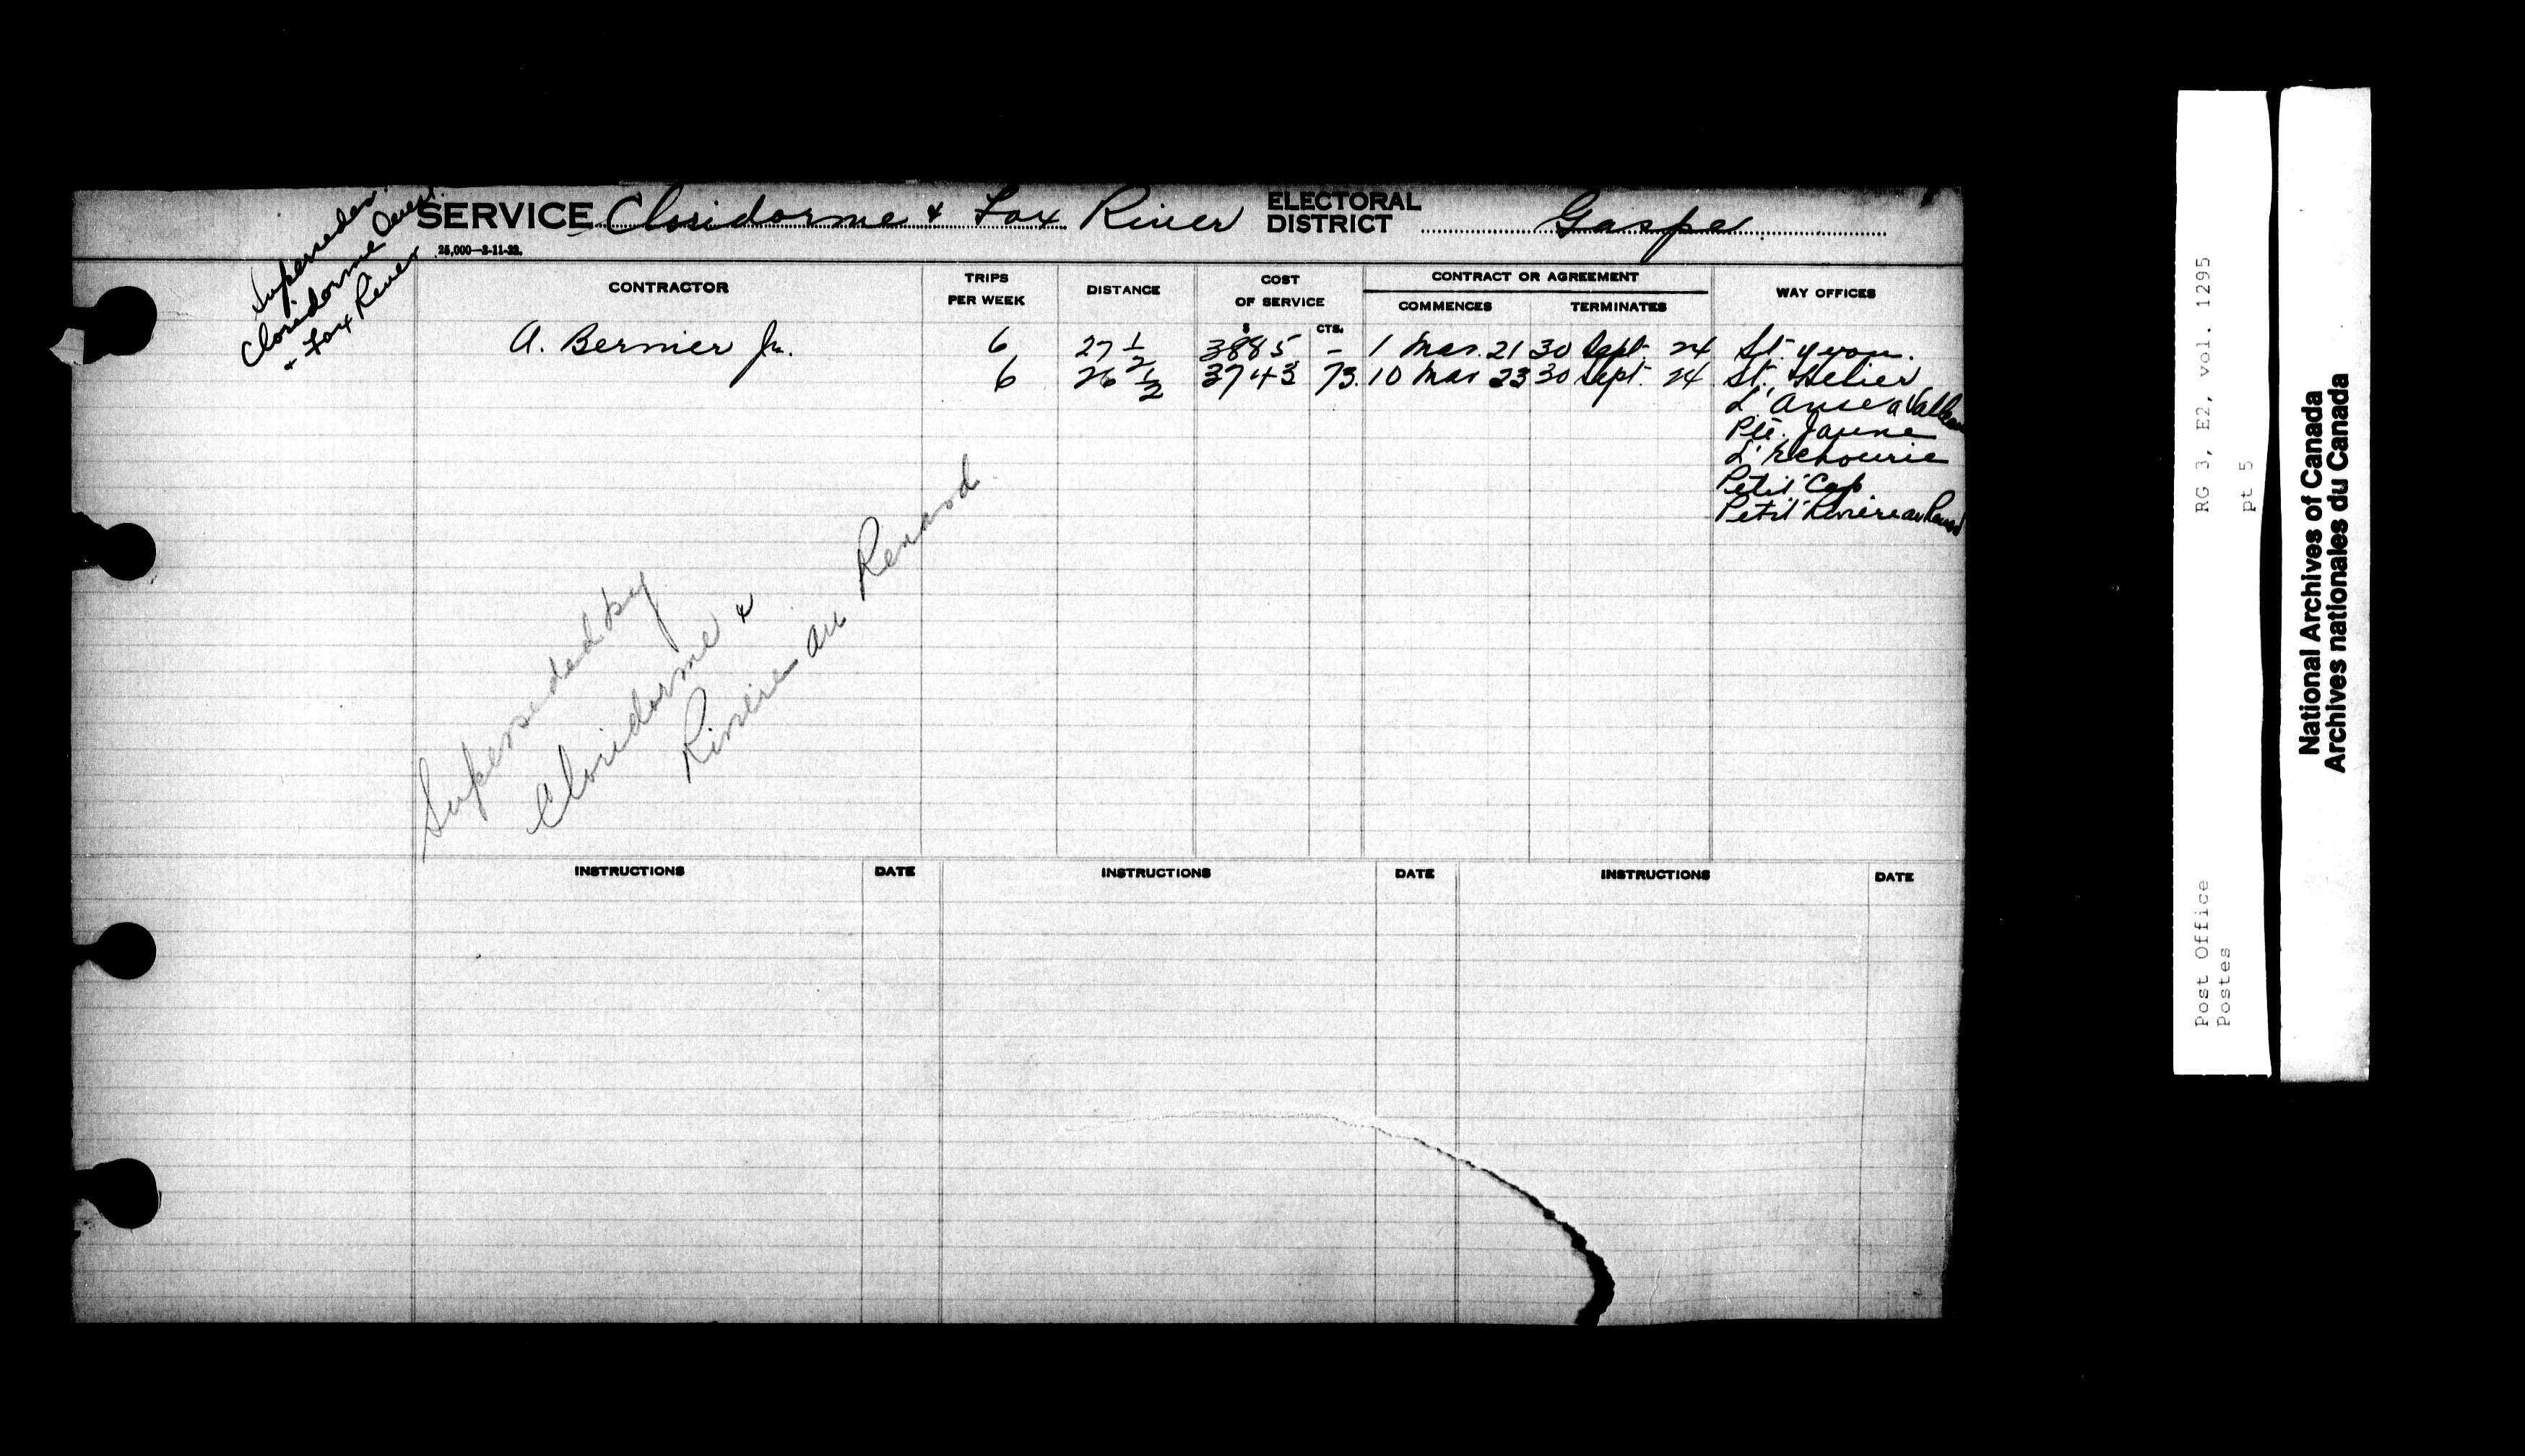 Supersedes
Cloridorme Ouest
& Fox River
SERVICE Cloridorme & Fox River ELECTORAL DISTRICT Gaspe
25,000—2-11-22.
CONTRACTOR TRIPS PER WEEK DISTANCE COST OF SERVICE CONTRACT OR AGREEMENT WAY OFFICES
COMMENCES TERMINATES
$ CTS.
A. Bernier Jr. 6 27 1/2 3885 - 1 Mar. 21 30 Sept. 24 St. Yvon.
6 26 1/2 3743 73. 10 Mar 23 30 Sept. 24 St. Helier
L'Anse a Valleau
Pte. Jaune
L'Echourie
Petit Cap
Petit Riviere au Renard
Superseded by
Cloridorme &
Riviere au Renard
INSTRUCTIONS DATE INSTRUCTIONS DATE INSTRUCTIONS DATE
RG 3, E2, vol. 1295
pt 5
Post Office
Postes
National Archives of Canada
Archives nationales du Canada